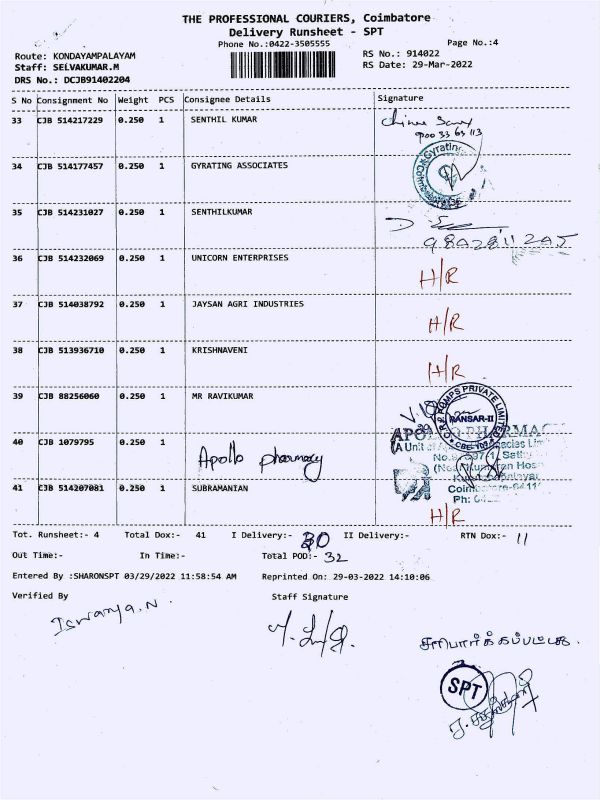 THE PROFESSIONAL COURIERS, Coimbatore
Delivery Runsheet - SPT
Phone No.:0422-3505555
Page No.:4
Route: KONDAYAMPALAYAM
RS No.: 914022
Staff: SELVAKUMAR.M
RS Date: 29-Mar-2022
DRS No.: DCJB91402204
S No Consignment No Weight PCS Consignee Details Signature
33 CJB 514217229 0.250 1 SENTHIL KUMAR
34 CJB 514177457 0.250 1 GYRATING ASSOCIATES
Gyrating
35 CJB 514231027 0.250 1 SENTHILKUMAR
36 CJB 514232069 0.250 1 UNICORN ENTERPRISES
H/R
37 CJB 514038792 0.250 1 JAYSAN AGRI INDUSTRIES
H/R
38 CJB 513936710 0.250 1 KRISHNAVENI
H/R
39 CJB 88256060 0.250 1 MR RAVIKUMAR
PUMPS PRIVATE LIMITED
ANSAR-II
40 CJB 1079795 0.250 1 Apollo pharmacy
41 CJB 514207081 0.250 1 SUBRAMANIAN
H/R
Tot. Runsheet:- 4 Total Dox:- 41 I Delivery:- 30 II Delivery:- RTN Dox:- 11
Out Time:- In Time:- Total POD:- 32
Entered By :SHARONSPT 03/29/2022 11:58:54 AM Reprinted On: 29-03-2022 14:10:06
Verified By Staff Signature
Iswarya.N.
சரிபார்க்கப்பட்டது.
SPT